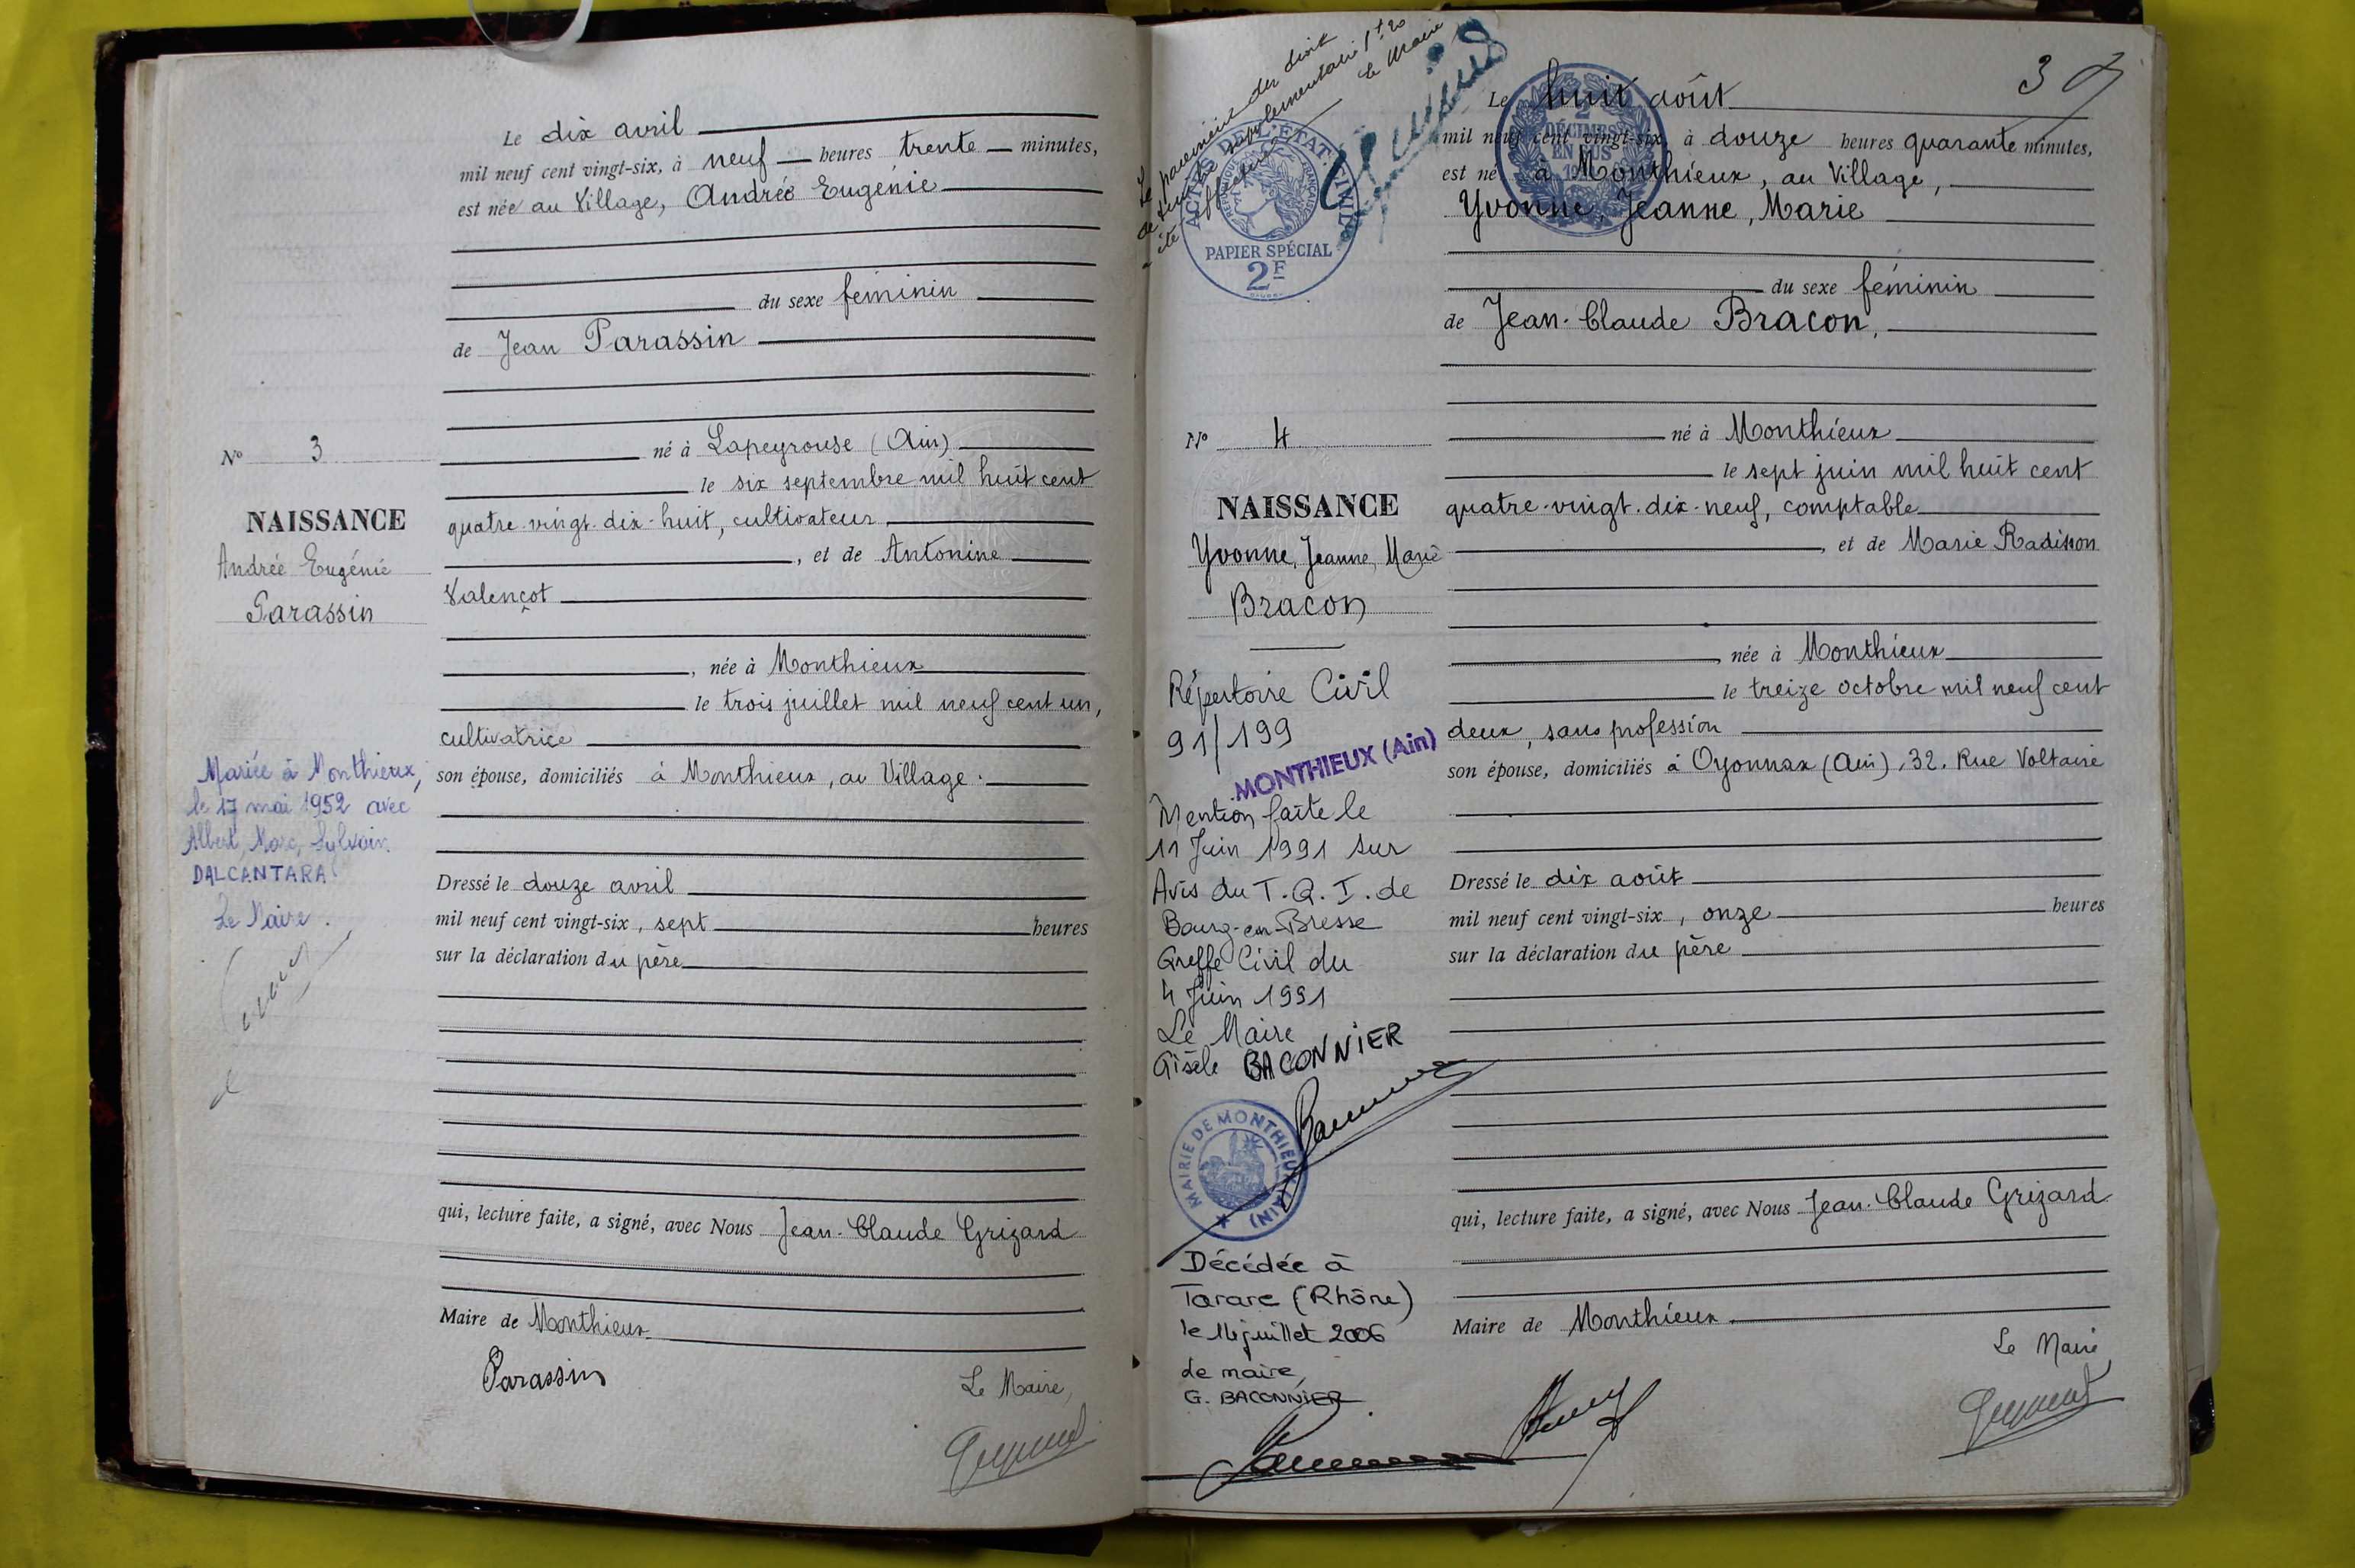 Le dix avril
mil neuf cent vingt-six, à neuf heures trente minutes,
est née au Village, Andrée Eugénie
du sexe féminin
de Jean Parassin
né à Lapeyrouse (Ain)
le six septembre mil huit cent
quatre-vingt-dix-huit, cultivateur
, et de Antonine
Valençot
, née à Monthieux
le trois juillet mil neuf cent un,
cultivatrice
son épouse, domiciliés à Monthieux, au Village.
Dressé le douze avril
mil neuf cent vingt-six, sept heures
sur la déclaration du père
qui, lecture faite, a signé, avec Nous Jean-Claude Grizard
Maire de Monthieux
Parassin
Le Maire,
N° 3
NAISSANCE
Andrée Eugénie
Parassin
Mariée à Monthieux,
le 17 mai 1952 avec
Albert, Marc, Sylvain
DALCANTARA
Le Maire.
Le paiement des droits
de timbre supplémentaire
été effectué
Le Maire
ACTES DE L'ETAT CIVIL
RÉPUBLIQUE FRANÇAISE
PAPIER SPÉCIAL
2F
2
DÉCIMES
EN SUS
3
Le huit août
mil neuf cent vingt-six, à douze heures quarante minutes,
est né à Monthieux, au Village,
Yvonne, Jeanne, Marie
du sexe féminin
de Jean-Claude Bracon,
né à Monthieux
le sept juin mil huit cent
quatre-vingt-dix-neuf, comptable
, et de Marie Radisson
, née à Monthieux
le treize octobre mil neuf cent
deux, sans profession
son épouse, domiciliés à Oyonnax (Ain), 32, Rue Voltaire
Dressé le dix août
mil neuf cent vingt-six, onze heures
sur la déclaration du père
qui, lecture faite, a signé, avec Nous Jean-Claude Grizard
Maire de Monthieux.
Le Maire
N° 4
NAISSANCE
Yvonne, Jeanne, Marie
Bracon
Répertoire Civil
91/199
MONTHIEUX (Ain)
Mention faite le
11 Juin 1991 sur
Avis du T.G.I. de
Bourg-en-Bresse
Greffe Civil du
4 Juin 1991
Le Maire
Gisèle BACONNIER
MAIRIE DE MONTHIEUX (AIN)
Décédée à
Tarare (Rhône)
le 14 juillet 2006
de maire,
G. BACONNIER